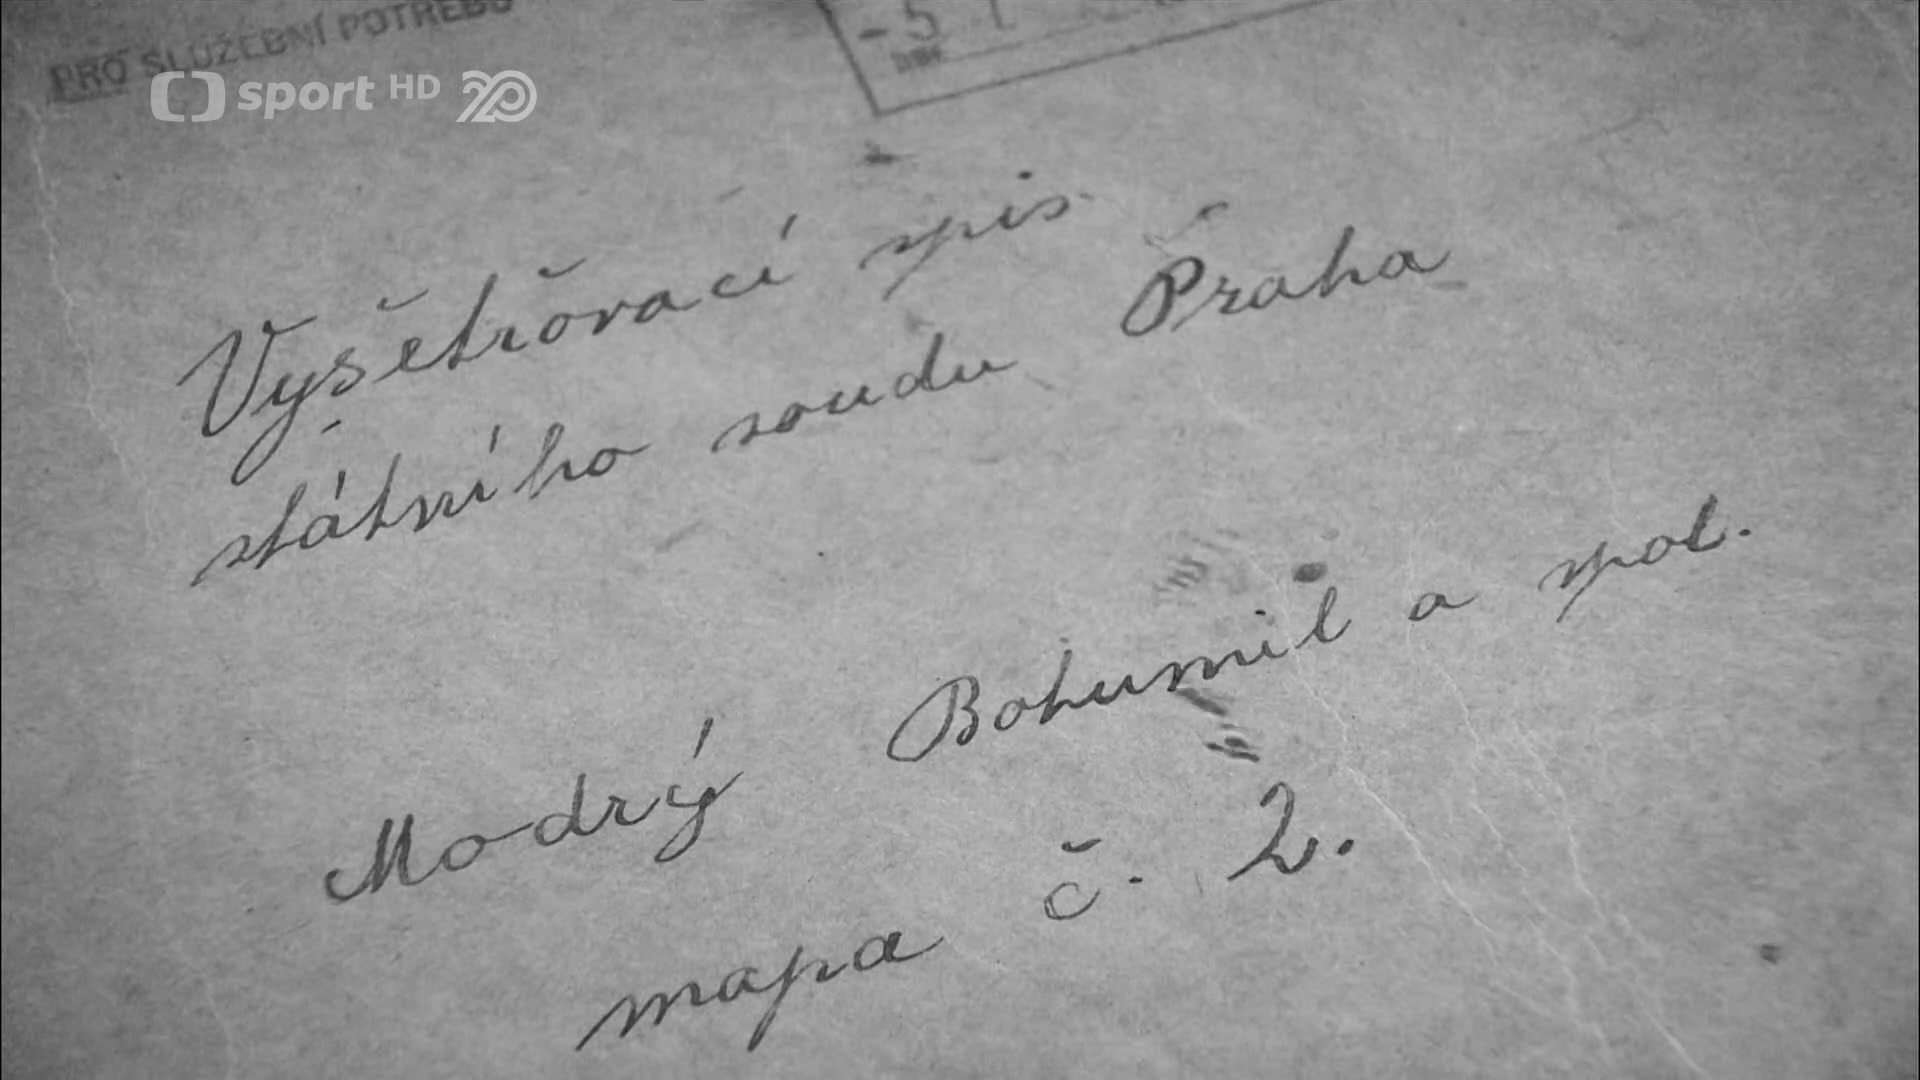 PRO SLUŽEBNÍ POTŘEBU
- 5 1
DNE
sport HD 20
Vyšetřovací spis
státního soudu Praha
Modrý Bohumil a spol.
mapa č. 2.